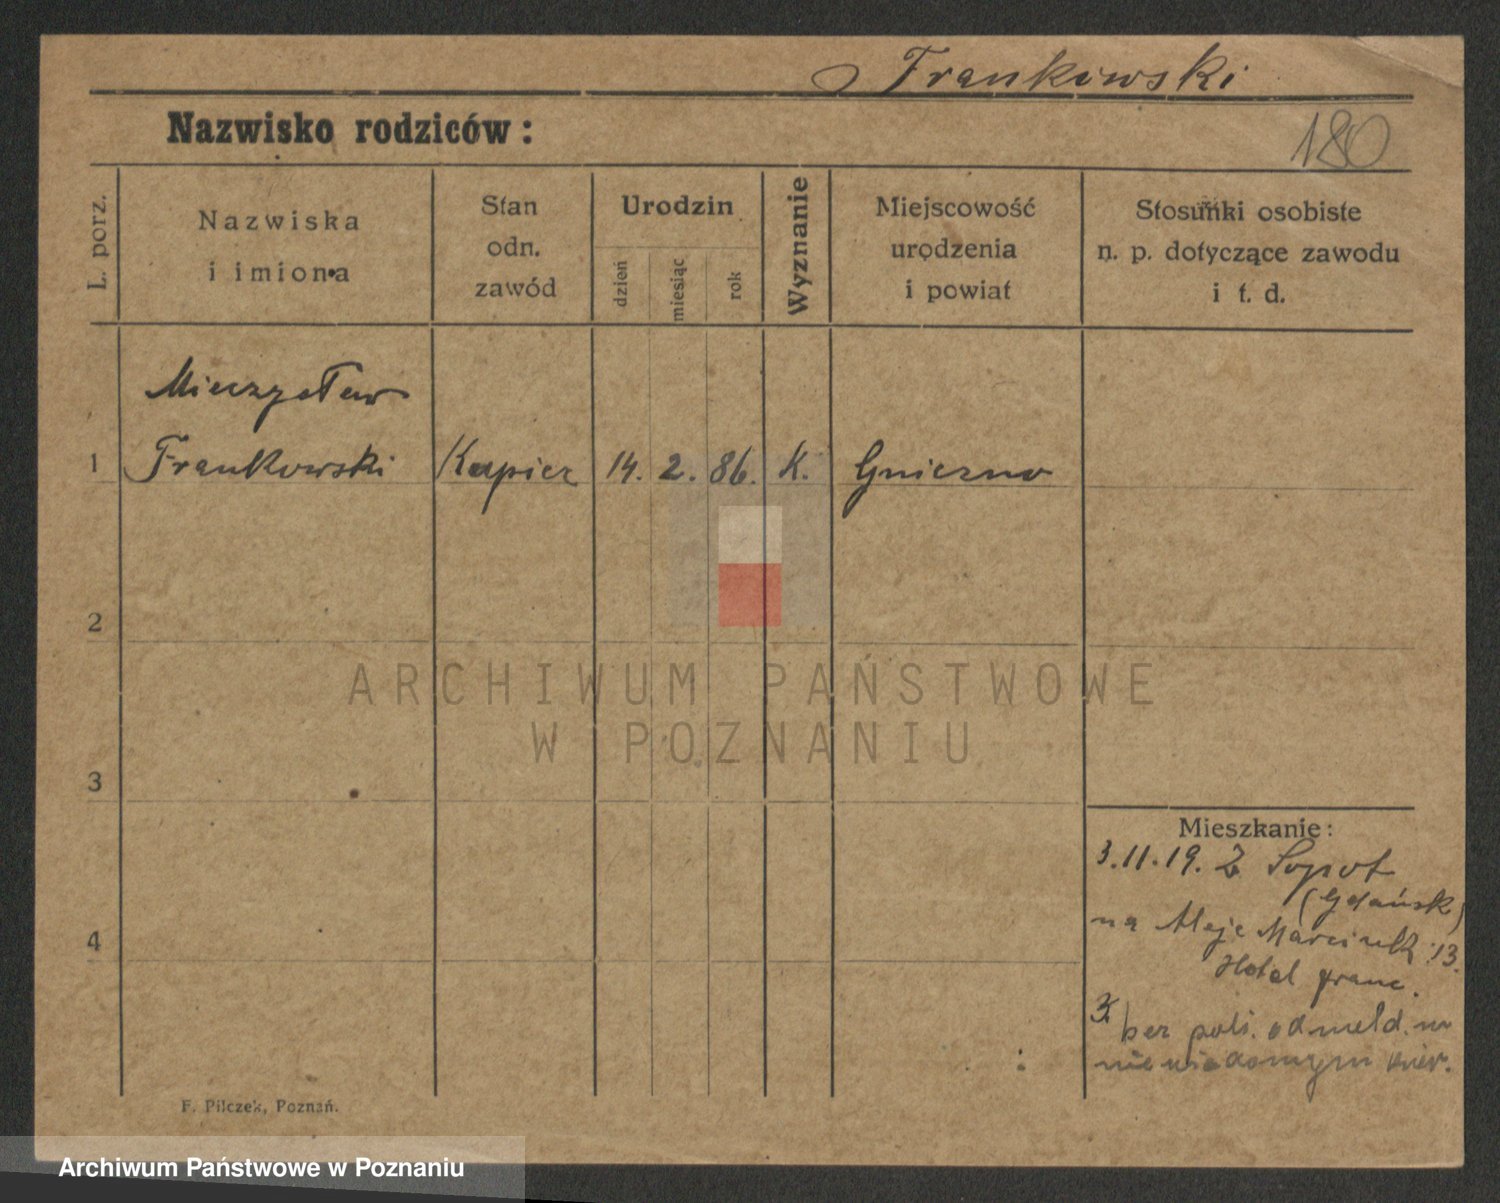 Frankowski
Nazwisko rodziców:
180
L. porz.
Nazwiska
i imiona
Stan
odn.
zawód
Urodzin
dzień
miesiąc
rok
Wyznanie
Miejscowość
urodzenia
i powiat
Stosunki osobiste
n. p. dotyczące zawodu
i t. d.
Mieczysław
1 Frankowski Kupiec 14. 2. 86. K. Gniezno
2
ARCHIWUM PAŃSTWOWE
W POZNANIU
3
Mieszkanie:
3.11.19. Z Sopot
(Gdańsk)
na Aleje Marcink. 13.
Hotel franc.
bez poli. odmeld. w
niewiadomym kier.
4
F. Pilczek, Poznań.
Archiwum Państwowe w Poznaniu